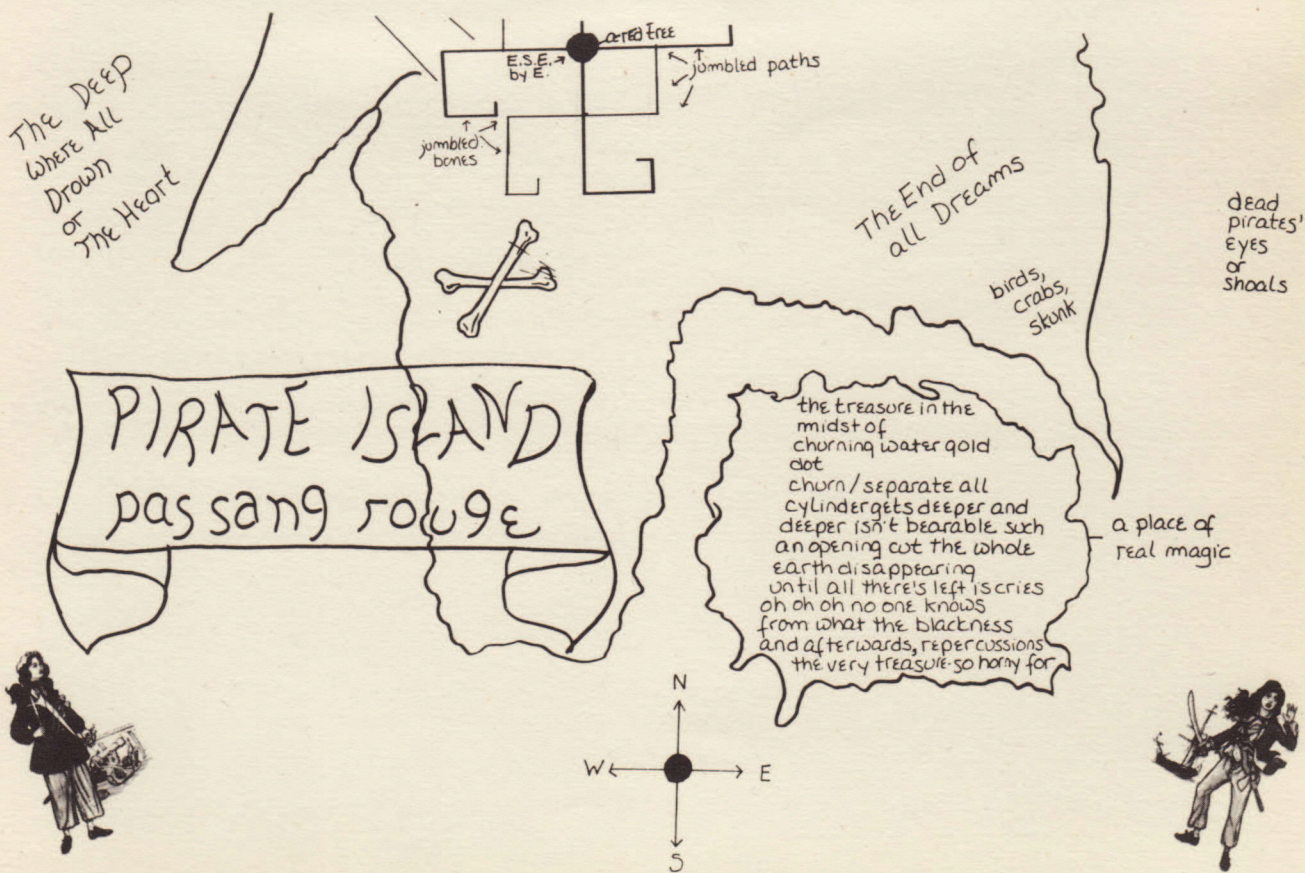 The Deep
Where All
Drown
or
The Heart
a red tree
E.S.E.
by E.
jumbled paths
jumbled
bones
The End of
all Dreams
birds,
crabs,
skunk
dead
pirates'
eyes
or
shoals
PIRATE ISLAND
passang rouge
the treasure in the
midst of
churning water gold
dot
churn/separate all
cylinder gets deeper and
deeper isn't bearable such
an opening cut the whole
earth disappearing
until all there's left is cries
oh oh oh no one knows
from what the blackness
and afterwards, repercussions
the very treasure so horny for
a place of
real magic
N
W
E
S